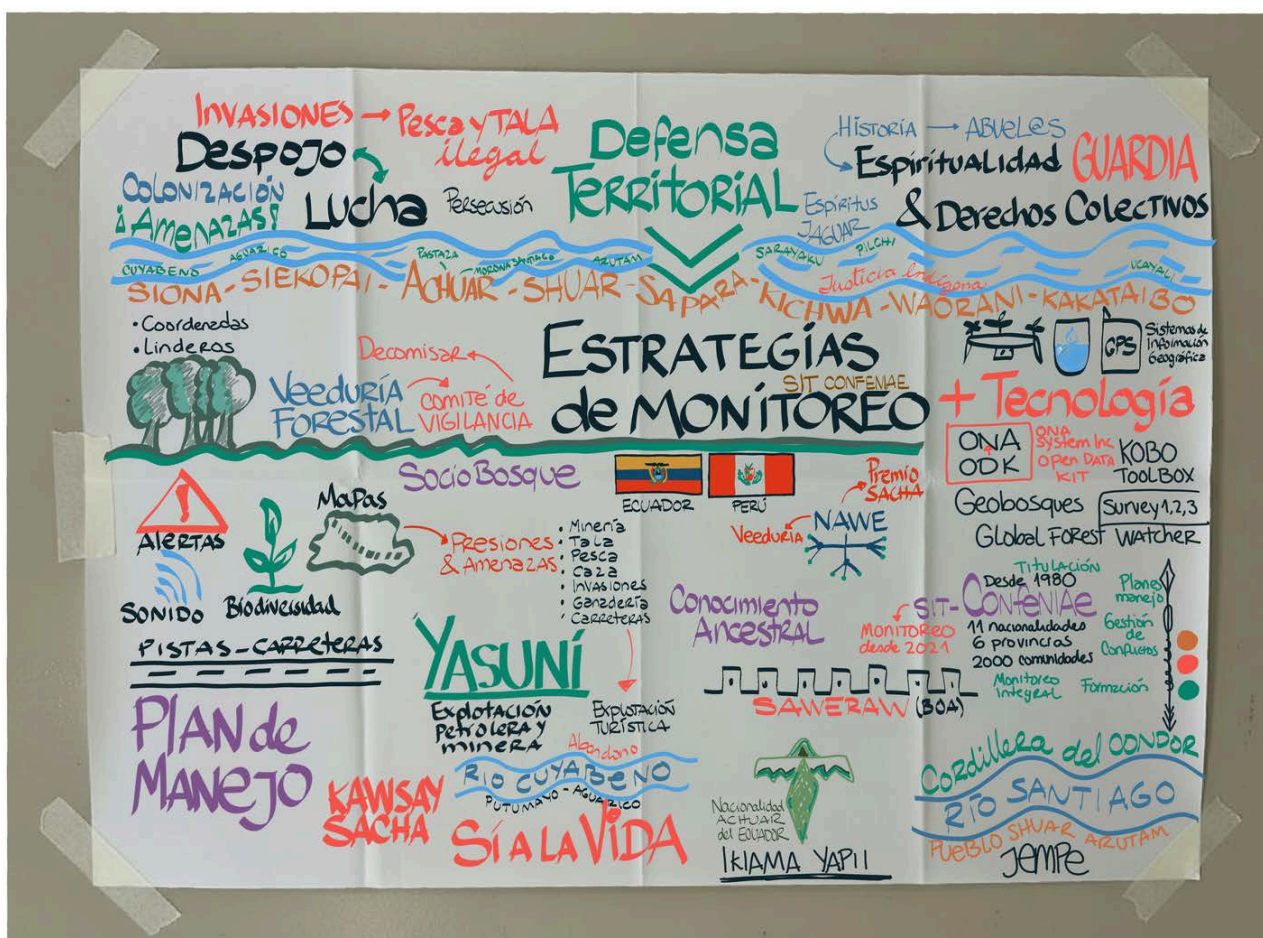 INVASIONES → Pesca y TALA
ilegal
Despojo
COLONIZACIÓN
¡AMENAZAS!
Lucha
Persecusión
Defensa
TERRITORIAL
HISTORIA → ABUEL@S
Espiritualidad
GUARDIA
Espíritus
JAGUAR
& Derechos Colectivos
CUYABENO
AGUARICO
PASTAZA
MORONA SANTIAGO
ARUTAM
SARAYAKU
PILCHI
Justicia Indígena
UCAYALI
SIONA - SIEKOPAI - ACHUAR - SHUAR - SAPARA - KICHWA - WAORANI - KAKATAIBO
• Coordenadas
• Linderos
Decomisar
Veeduría
FORESTAL
COMITÉ DE
VIGILANCIA
ESTRATEGÍAS
SIT CONFENIAE
de MONITOREO
GPS
Sistemas de
Información
Geográfica
+ Tecnología
ONA
ODK
ONA
System Inc.
OPEN DATA
KIT
KOBO
TOOLBOX
Geobosques
Survey 1,2,3
Global Forest WATCHER
SocioBosque
ECUADOR
PERÚ
Premio
SACHA
Veeduría
NAWE
ALERTAS
SONIDO
Biodiversidad
Mapas
Presiones
& Amenazas
• Minería
• Tala
• Pesca
• Caza
• Invasiones
• Ganadería
• Carreteras
PISTAS - CARRETERAS
YASUNÍ
Explotación
Petrolera y
minera
Explotación
TURÍSTICA
Conocimiento
Ancestral
MONITOREO
desde 2021
Titulación
Desde 1980
SIT-Confeniae
11 nacionalidades
6 provincias
2000 comunidades
Monitoreo
Integral
Planes
manejo
Gestión
de
Conflictos
Formación
SAWERAW (BOA)
PLAN de
MANEJO
KAWSAY
SACHA
Abandono
RÍO CUYABENO
PUTUMAYO - AGUARICO
SÍ A LA VIDA
Nacionalidad
ACHUAR
del ECUADOR
IKIAMA YAPII
Cordillera del CONDOR
RÍO SANTIAGO
PUEBLO SHUAR ARUTAM
JEMPE